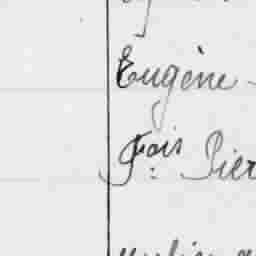 Eugène
Fois Pier